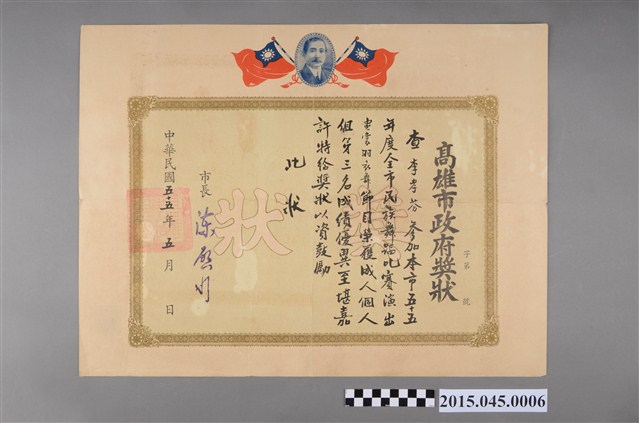 高雄市政府獎狀
字第 號
查李孝芬參加本市五十五
年度全市民族舞蹈比賽演出
霓裳羽衣舞節目榮獲成人個人
組第三名成績優異至堪嘉
許特給獎狀以資鼓勵
此狀
獎狀
市長 陳啟川
中華民國五十五年五月 日
2015.045.0006